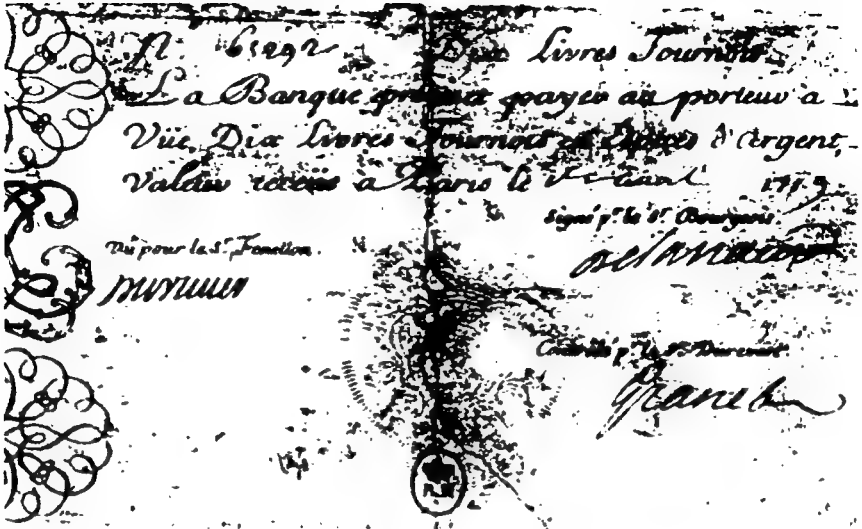 N. 65292 Dix Livres Tournois.
La Banque promet payer au porteur à
Vüe Dix Livres Tournois en Espéces d'Argent,
valeur receüe à Paris le 171
Signé p.r le S.r Bourgeois.
Vû pour le S.r Fenellon.
Controllé p.r le S.r Durevest.
Granet